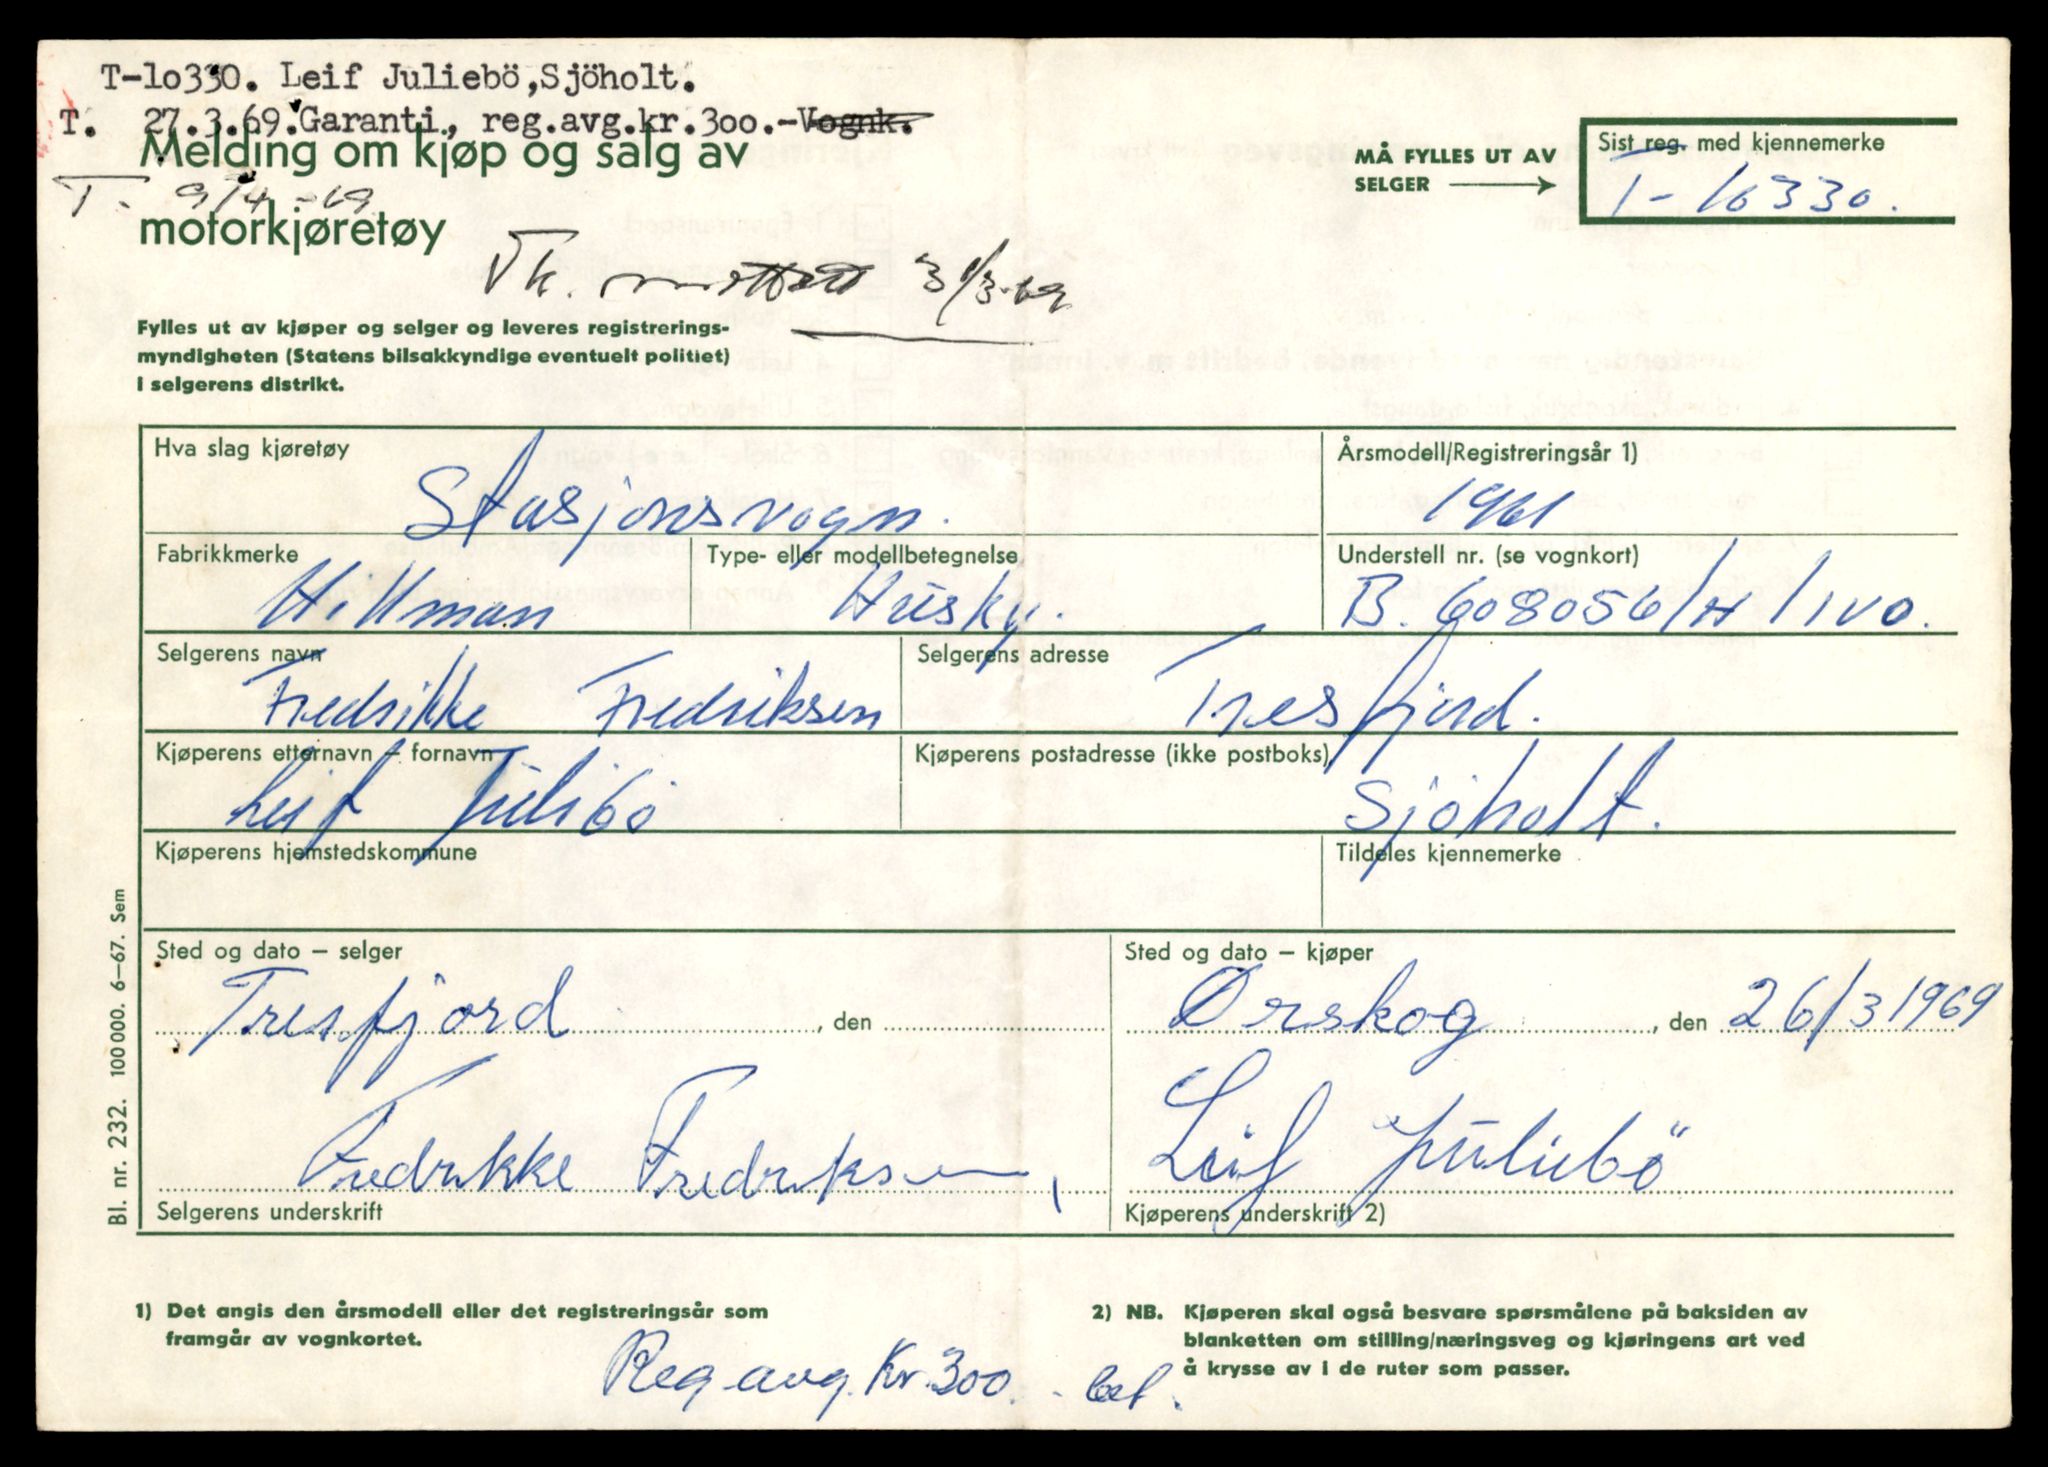 T-10330. Leif Juliebö,Sjöholt.
T. 27.3.69.Garanti, reg.avg.kr.300.-Vognk.
Melding om kjøp og salg av
motorkjøretøy
T. 9/4-69
Vk. mottatt 31/3-69
MÅ FYLLES UT AV
SELGER
Sist reg. med kjennemerke
T-10330.
Fylles ut av kjøper og selger og leveres registrerings-
myndigheten (Statens bilsakkyndige eventuelt politiet)
i selgerens distrikt.
Hva slag kjøretøy
Stasjonsvogn.
Årsmodell/Registreringsår 1)
1961
Fabrikkmerke
Hillman
Type- eller modellbetegnelse
Husky.
Understell nr. (se vognkort)
B. 608056/H/IVO.
Selgerens navn
Fredrikke Fredriksen
Selgerens adresse
Tresfjord.
Kjøperens etternavn – fornavn
Leif Julibö
Kjøperens postadresse (ikke postboks)
Sjöholt.
Kjøperens hjemstedskommune
Tildeles kjennemerke
Sted og dato – selger
Tresfjord , den
Sted og dato – kjøper
Ørskog , den 26/3 1969
Fredrikke Fredriksen
Selgerens underskrift
Leif Juliebö
Kjøperens underskrift 2)
Bl. nr. 232. 100 000. 6–67. Sem
1) Det angis den årsmodell eller det registreringsår som
framgår av vognkortet.
2) NB. Kjøperen skal også besvare spørsmålene på baksiden av
blanketten om stilling/næringsveg og kjøringens art ved
å krysse av i de ruter som passer.
Reg.avg. Kr.300.- bet.